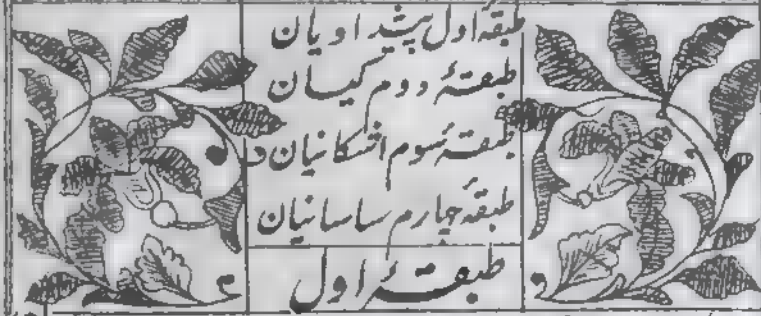 طبقهٔ اول پیشدادیان
طبقهٔ دوم کیان
طبقهٔ سوم اشکانیان و
طبقهٔ چارم ساسانیان
طبقهٔ اول